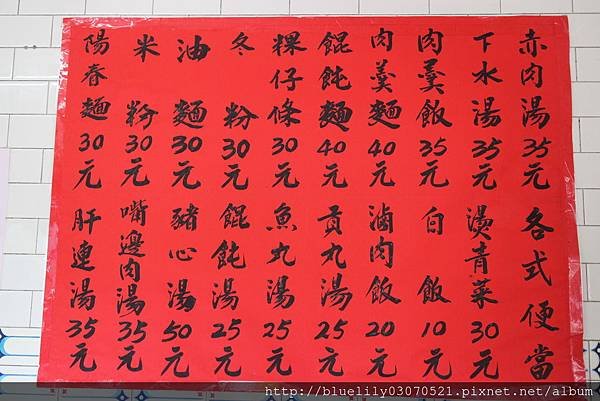 赤肉湯35元
下水湯35元
肉羹飯35元
肉羹麵40元
餛飩麵40元
粿仔條30元
冬粉30元
油麵30元
米粉30元
陽春麵30元
各式便當
燙青菜30元
白飯10元
滷肉飯20元
貢丸湯25元
魚丸湯25元
餛飩湯25元
豬心湯50元
嘴邊肉湯35元
肝連湯35元
http://bluelily03070521.pixnet.net/album